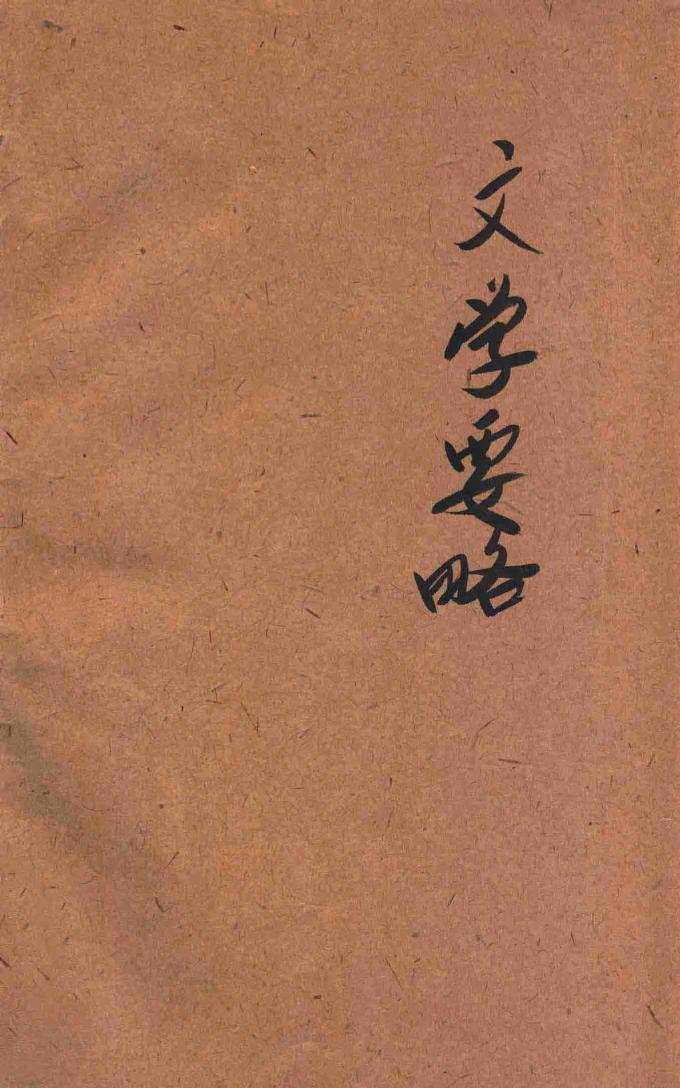 文学要略